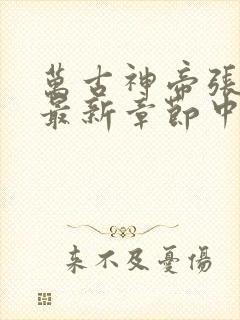 萬古神帝張
最新章節中
來不及憂傷